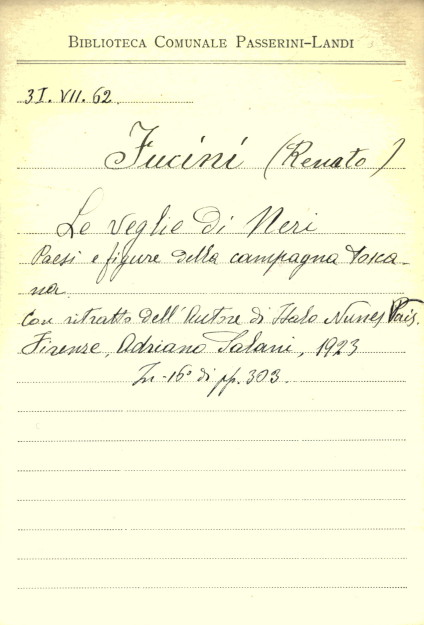 BIBLIOTECA COMUNALE PASSERINI-LANDI
3I. VII. 62.
Fucini (Renato)
Le veglie di Neri
Paesi e figure della campagna tosca-
na.
Con ritratto dell'Autore di Italo Nunes Vais.
Firenze, Adriano Salani, 1923
In-16° di pp. 303.